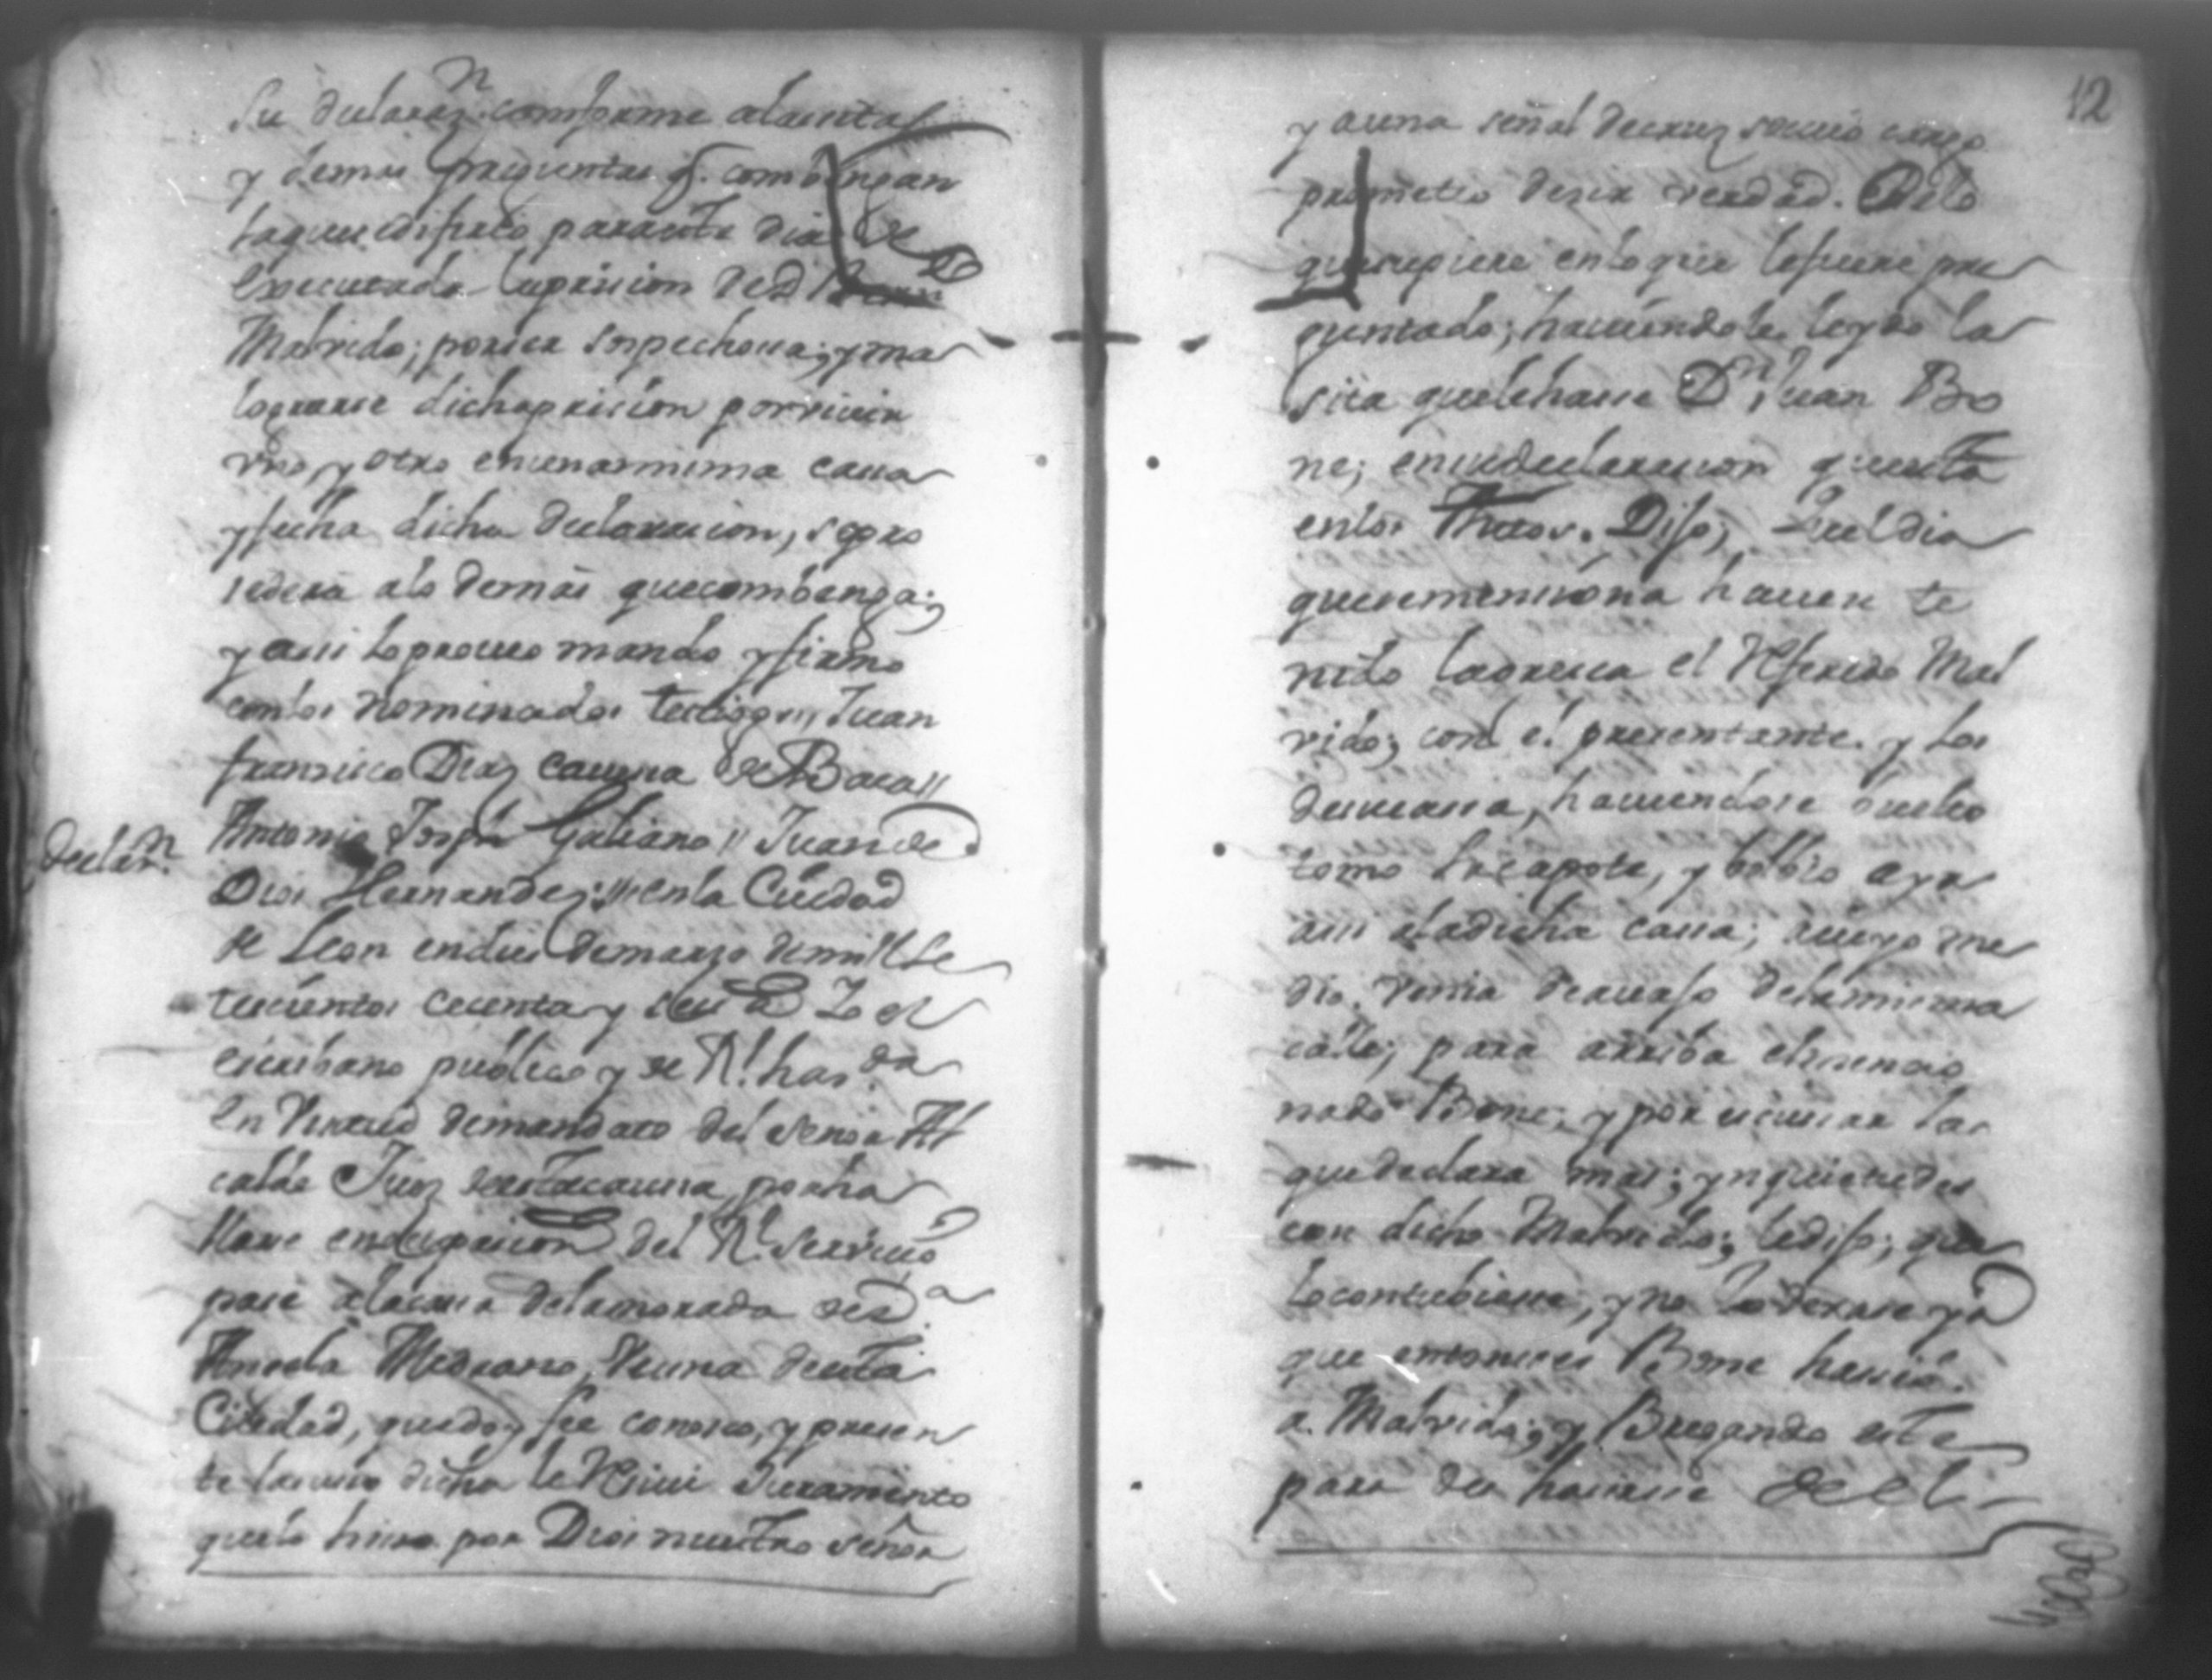 Su declaraz.n comforme alacita
y demas preguntas q.e combengan
laque difirio paraeste dia de
Executada laprision de d.n
Malvido; porser sospechosa; y ma
lograrse dichaprision porvivir
vno, y otro enunamisma cassa
y fecha dicha declarasion, sepro
sedera alo demas quecombenga;
y assi loproveo mando y firmo
conlos nominados testigos,, Juan
francisco Diaz Cavessa de Baca //
Antonio Joseph Galiano // Juan de
Declar.n
Dios Hernandez // enla Ciudad
de Leon endies demarzo demill Se
tecientos cecenta y seis a Yo el
escribano publico y de R.l haz.da
En Virtud demandato del señor Al
calde Juez deestacaussa, porha
llarse enocupacion del R.l servicio
pasé alacassa delamorada de d.a
Angela Medrano, Vecina deesta
Ciudad, quedoy fee conosco, y presen
te lasusso dicha le Resivi Juramento
quelo hisso por Dios nuestro señor
12
y auna señal decruz socuio cargo
prometio desir verdad. Delo
quesupiere enloque lefuere pre
guntado; haviendole leydo la
sita quelehasse D.n Juan Bo
ne; ensudeclarasion questa
enlos Autos. Dijo; Queldia
quesemensióna haver te
nido lagresca el Referido Mal
vido; con el presentante y los
desucassa, haviendose buelto
tomo lacapote, y bolbio
assi aladicha cassa; acuyo me
dio, venia deavajo delamisma
calle; para arriba elmensio
nado Bone; y por escussar la
quedeclara mas; ynquietudes
con dicho Malvido; ledijo; que
locontubiesse; y no lo dexase yr
que entonses Bone
a Malvido; y Bregando este
para des hasirse de el